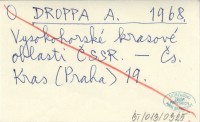 DROPPA A. 1968.
Vysokohorské krasové
oblasti ČSSR. — Čs.
Kras (Praha) 19.